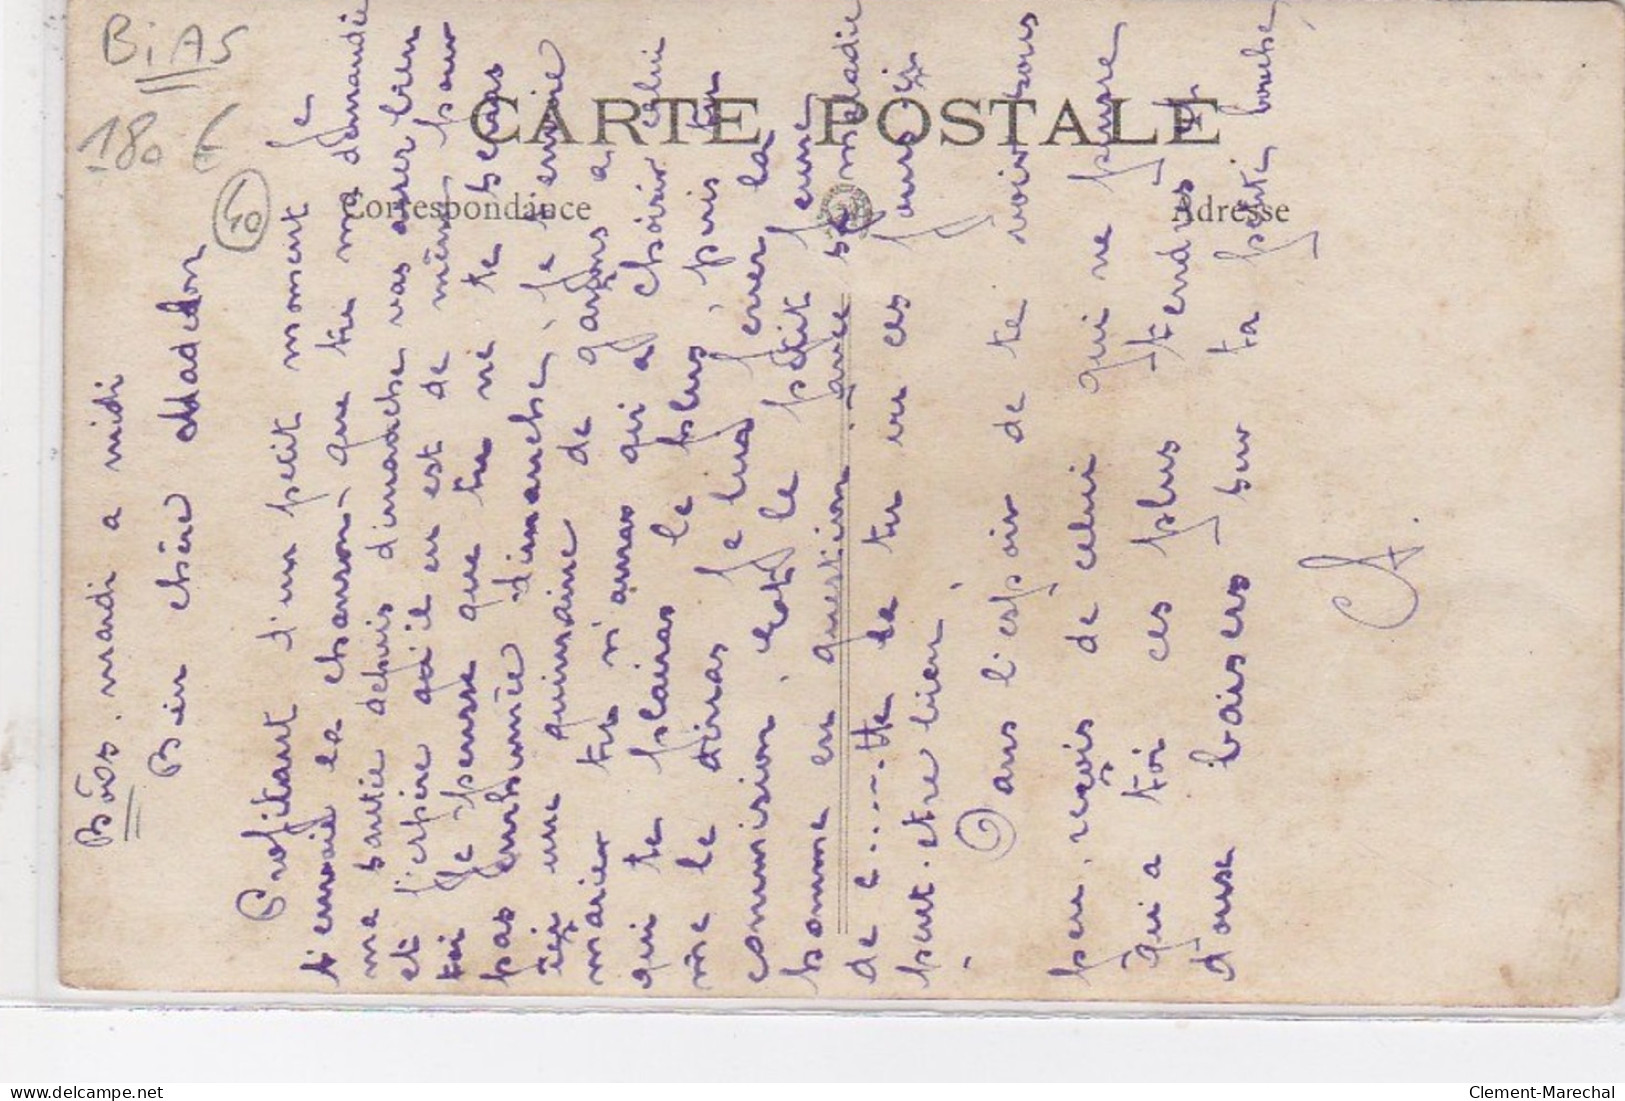 BiAS
180 €
40
CARTE POSTALE
Correspondance
Adresse
Bias. mardi a midi
Bien chère Madelon
Profitant d'un petit moment je
t'envoie la chanson que tu ma demandée
ma santée depuis dimanche vas assez bien
et j'espère qu'il en est de même pour
toi Je pense que tu ne te seras
pas enrhumée dimanche, Je t'envoie
ici une quinzaine de garçons a
marier tu n'auras qui a choisir celui
qui te plairas le plus, puis tu
me le diras je lui ferer la
commision, voit le petit jeune
homme en question avec sa maladie
de l......tte la tu vu ces jours ci
peut-être bien.
Dans l'espoir de te voir sous
peu, reçois de celui qui ne pense
qui a toi ces plus tendres et
doux baisers sur ta petite bouche,
A.
Clement-Marechal
delcampe.net